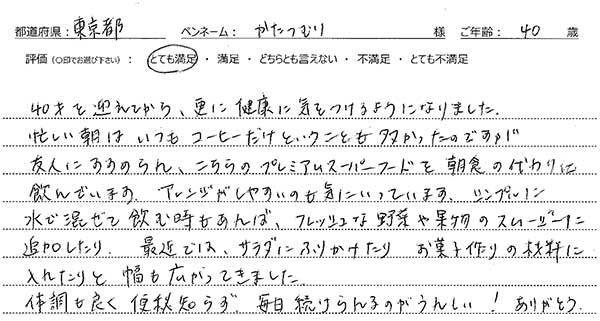 都道府県：東京都　ペンネーム：かたつむり　様　ご年齢：40　歳
評価（○印でお選び下さい）：とても満足・満足・どちらとも言えない・不満足・とても不満足
40才を迎えてから、更に健康に気をつけるようになりました。
忙しい朝はいつもコーヒーだけということも多かったのですが
友人にすすめられ、こちらのプレミアムスーパーフードを朝食の代わりに
飲んでいます。アレンジがしやすいのも気にいっています。シンプルに
水で混ぜて飲む時もあれば、フレッシュな野菜や果物のスムージーに
追加したり。最近では、サラダにふりかけたり お菓子作りの材料に
入れたりと 幅も広がってきました。
体調も良く 便秘知らず。毎日続けられるのがうれしい！ありがとう。